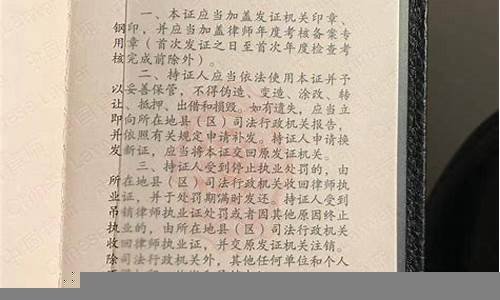 一、本证应当加盖发证机关印章、
钢印，并应当加盖律师年度考核备案专
用章（首次发证之日至首次年度检查考
核完成前除外）。
二、持证人应当依法使用本证并予
以妥善保管，不得伪造、变造、涂改、转
让、抵押、出借和损毁。如有遗失，应当立
即向所在地县（区）司法行政机关报告，
并依照有关规定申请补发。持证人申请换
发新证，应当将本证交回原发证机关。
三、持证人受到停止执业处罚的，由
所在地县（区）司法行政机关收回律师执
业证，并于处罚期满时发还。持证人受到
吊销律师执业证处罚或者因其他原因终止
执业的，由所在地县（区）司法行政机关
收回律师执业证，并交原发证机关注销。
除司法行政机关外，其他任何单位和个人